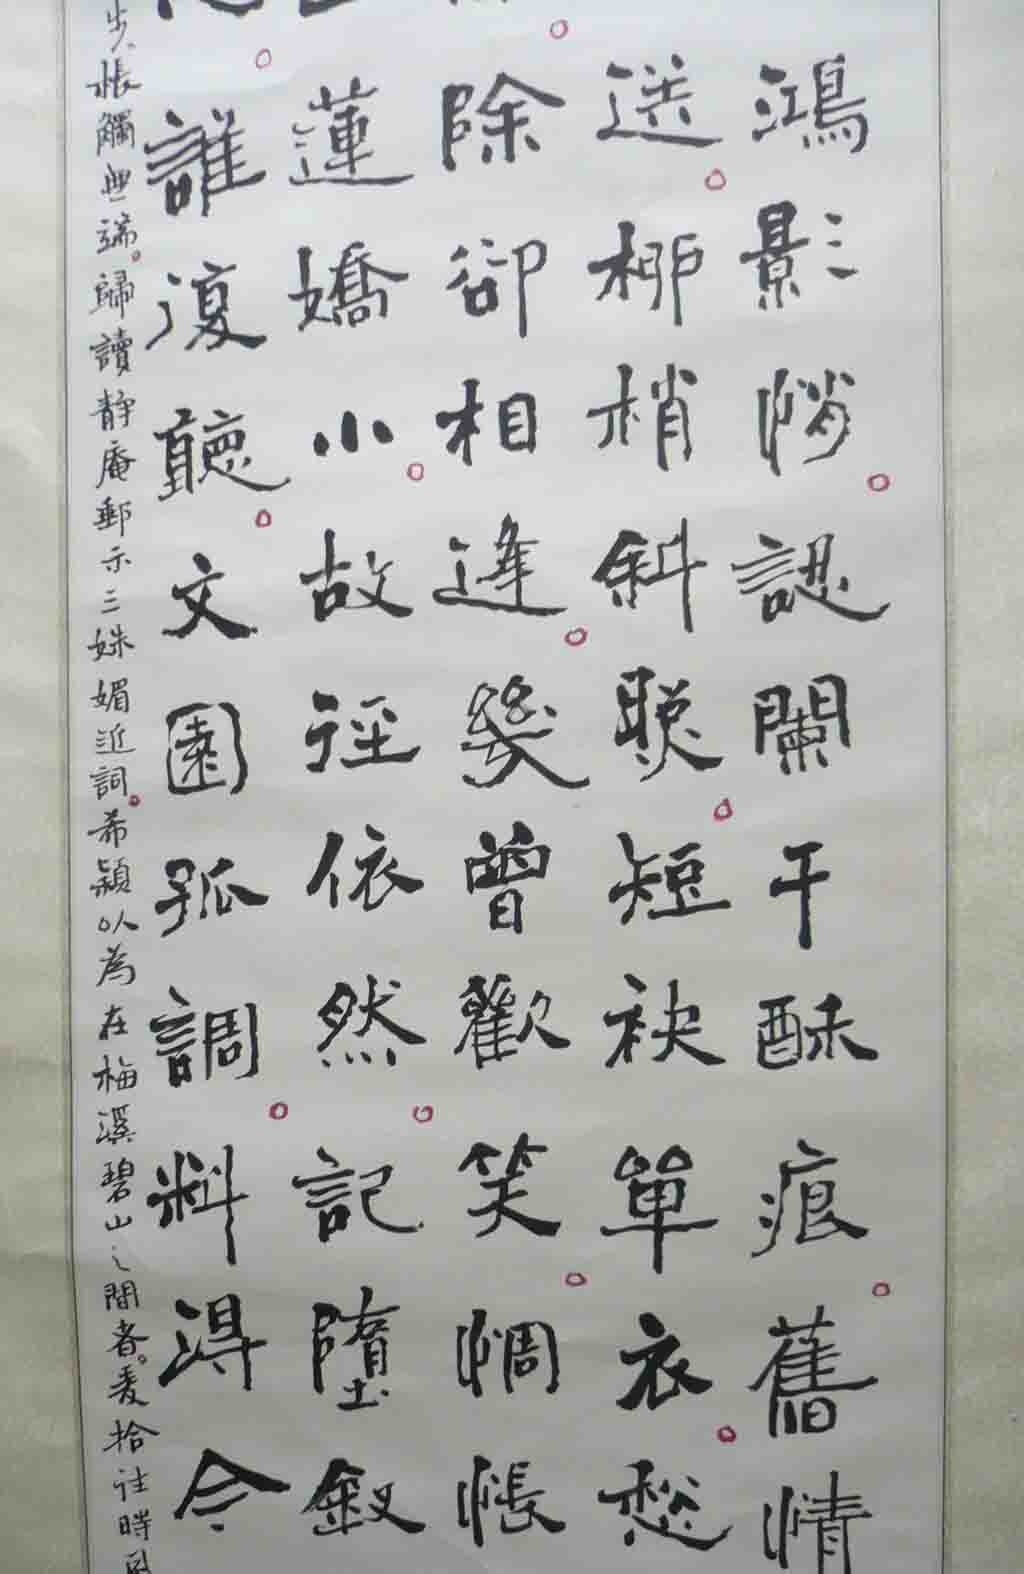 鴻影悄。認闌干酥痕。舊情
送。柳梢斜睇。短袂單衣。愁
除卻相逢。幾曾歡笑。惆悵
蓮嬌小。故徑依然。記墮釵
誰復聽。文園孤調。料得今
步。悵觸無端。歸讀靜庵郵示三姝媚近詞。希穎以為在梅溪碧山之間者。爰拾往時